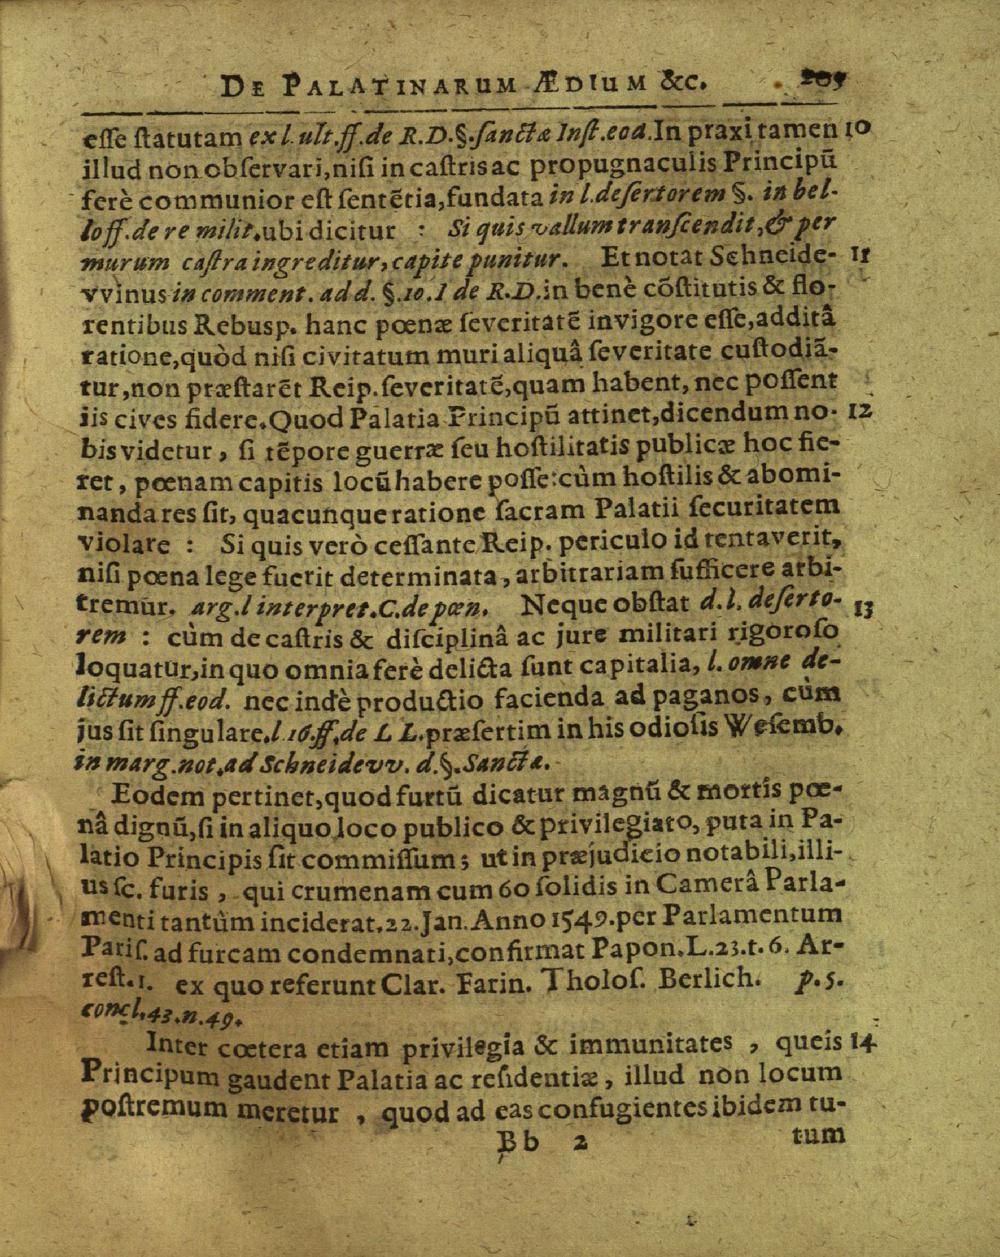 DE PALATINARUM ÆDIUM &c. 205
eſſe ſtatutam ex l. ult. ff. de R. D. §. ſanctæ Inſt. eod. In praxi tamen 10
illud non obſervari, niſi in caſtris ac propugnaculis Principũ
ferè communior eſt ſentẽtia, fundata in l. deſertorem §. in bel-
lo ff. de re milit. ubi dicitur : Si quis vallum tranſcendit, & per
murum caſtra ingreditur, capite punitur. Et notat Schneide- 11
vvinus in comment. ad d. §. 10. 1 de R. D. in benè cõſtitutis & flo-
rentibus Rebusp. hanc pœnæ ſeveritatẽ invigore eſſe, additâ
ratione, quòd niſi civitatum muri aliquâ ſeveritate cuſtodiã-
tur, non præſtarẽt Reip. ſeveritatẽ, quam habent, nec poſſent
iis cives fidere. Quod Palatia Principũ attinet, dicendum no- 12
bis videtur, ſi tẽpore guerræ ſeu hoſtilitatis publicæ hoc fie-
ret, pœnam capitis locũ habere poſſe: cùm hoſtilis & abomi-
nanda res ſit, quacunque ratione ſacram Palatii ſecuritatem
violare : Si quis verò ceſſante Reip. periculo id tentaverit,
niſi pœna lege fuerit determinata, arbitrariam ſufficere arbi-
tremur. arg. l interpret. C. de pœn. Neque obſtat d. l. deſerto- 13
rem : cùm de caſtris & diſciplinâ ac jure militari rigoroſo
loquatur, in quo omnia ferè delicta ſunt capitalia, l. omne de-
lictum ff. eod. nec indè productio facienda ad paganos, cùm
jus ſit ſingulare. l. 16. ff. de L L. præſertim in his odioſis Weſemb.
in marg. not. ad Schneidevv. d. §. Sanctæ.
Eodem pertinet, quod furtũ dicatur magnũ & mortis pœ-
nâ dignũ, ſi in aliquo loco publico & privilegiato, puta in Pa-
latio Principis ſit commiſſum; ut in præjudicio notabili, illi-
us ſc. furis, qui crumenam cum 60 ſolidis in Camerâ Parla-
menti tantùm inciderat. 22. Jan. Anno 1549. per Parlamentum
Pariſ. ad furcam condemnati, confirmat Papon. L. 23. t. 6. Ar-
reſt. 1. ex quo referunt Clar. Farin. Tholoſ. Berlich. p. 5.
concl. 43. n. 49.
Inter cœtera etiam privilegia & immunitates, queis 14
Principum gaudent Palatia ac reſidentiæ, illud non locum
poſtremum meretur, quod ad eas confugientes ibidem tu-
Bb 2 tum